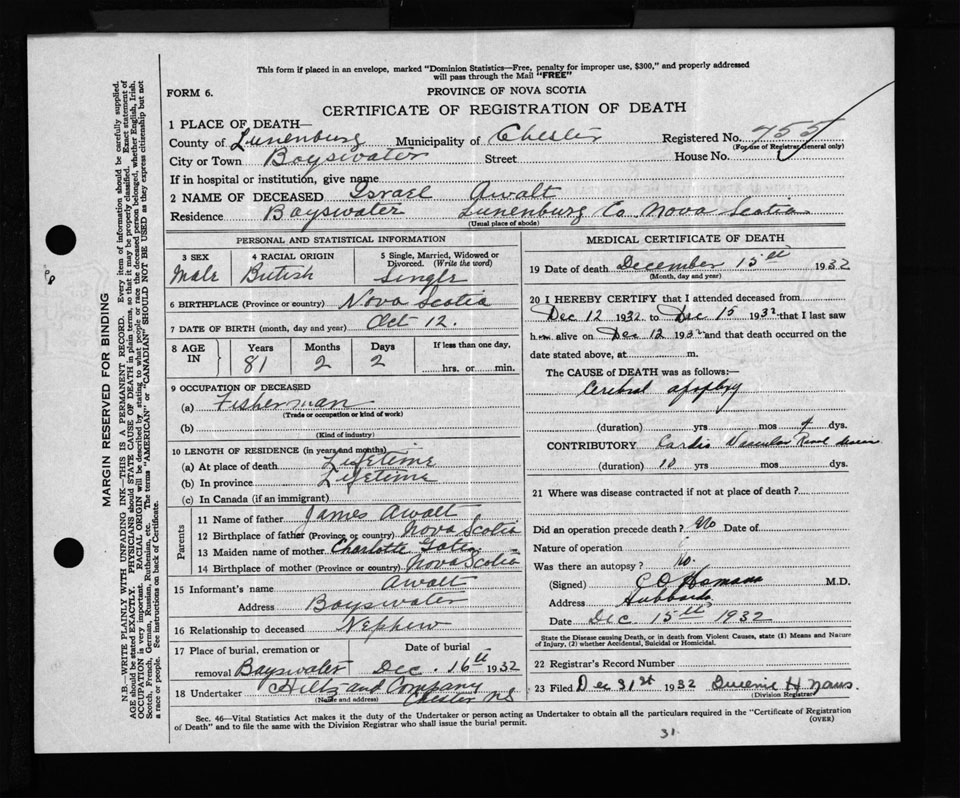 This form if placed in an envelope, marked "Dominion Statistics—Free, penalty for improper use, $300," and properly addressed
will pass through the Mail "FREE"
FORM 6.
PROVINCE OF NOVA SCOTIA
CERTIFICATE OF REGISTRATION OF DEATH
1 PLACE OF DEATH—
County of Lunenburg Municipality of Chester Registered No. 755
(For use of Registrar General only)
City or Town Bayswater Street House No.
If in hospital or institution, give name
2 NAME OF DECEASED Israel Awalt
Residence Bayswater Lunenburg Co. Nova Scotia
(Usual place of abode)
PERSONAL AND STATISTICAL INFORMATION
3 SEX 4 RACIAL ORIGIN 5 Single, Married, Widowed or
Divorced. (Write the word)
Male British Single
6 BIRTHPLACE (Province or country) Nova Scotia
7 DATE OF BIRTH (month, day and year) Oct 12.
8 AGE IN Years Months Days If less than one day.
81 2 2 hrs. or min.
9 OCCUPATION OF DECEASED
(a) Fisherman
(Trade or occupation or kind of work)
(b)
(Kind of industry)
10 LENGTH OF RESIDENCE (in years and months)
(a) At place of death Lifetime
(b) In province Lifetime
(c) In Canada (if an immigrant)
Parents
11 Name of father James Awalt
12 Birthplace of father (Province or country) Nova Scotia
13 Maiden name of mother Charlotte
14 Birthplace of mother (Province or country) Nova Scotia
15 Informant's name Awalt
Address Bayswater
16 Relationship to deceased Nephew
17 Place of burial, cremation or Date of burial
removal Bayswater Dec. 16th 1932
18 Undertaker Hiltz and Company
(Name and address) Chester N.S
MEDICAL CERTIFICATE OF DEATH
19 Date of death December 15th 1932
(Month, day and year)
20 I HEREBY CERTIFY that I attended deceased from
Dec 12 1932 to Dec 15 1932 that I last saw
him alive on Dec 12 1932 and that death occurred on the
date stated above, at m.
The CAUSE of DEATH was as follows:—
Cerebral apoplexy
(duration) yrs mos 4 dys.
CONTRIBUTORY Cardio Vascular Renal disease
(duration) 10 yrs mos dys.
21 Where was disease contracted if not at place of death?
Did an operation precede death? No Date of
Nature of operation
Was there an autopsy? no.
(Signed) M.D.
Address Hubbards
Date Dec. 15th 1932
State the Disease causing Death, or in death from Violent Causes, state (1) Means and Nature
of Injury, (2) whether Accidental, Suicidal or Homicidal.
22 Registrar's Record Number
23 Filed Dec 31st 1932
(Division Registrar)
Sec. 46—Vital Statistics Act makes it the duty of the Undertaker or person acting as Undertaker to obtain all the particulars required in the "Certificate of Registration
of Death" and to file the same with the Division Registrar who shall issue the burial permit. (OVER)
31
MARGIN RESERVED FOR BINDING
N.B.—WRITE PLAINLY WITH UNFADING INK—THIS IS A PERMANENT RECORD. Every item of information should be carefully supplied.
AGE should be stated EXACTLY. PHYSICIANS should STATE CAUSE OF DEATH in plain terms, so that it may be properly classified. Exact statement of
OCCUPATION is very important. RACIAL ORIGIN will be described by stating to what people or race the deceased person belonged, whether English, Irish,
Scotch, French, German, Russian, Ruthenian, etc. The terms "AMERICAN" or "CANADIAN" SHOULD NOT BE USED as they express citizenship but not
a race or people. See instructions on back of Certificate.